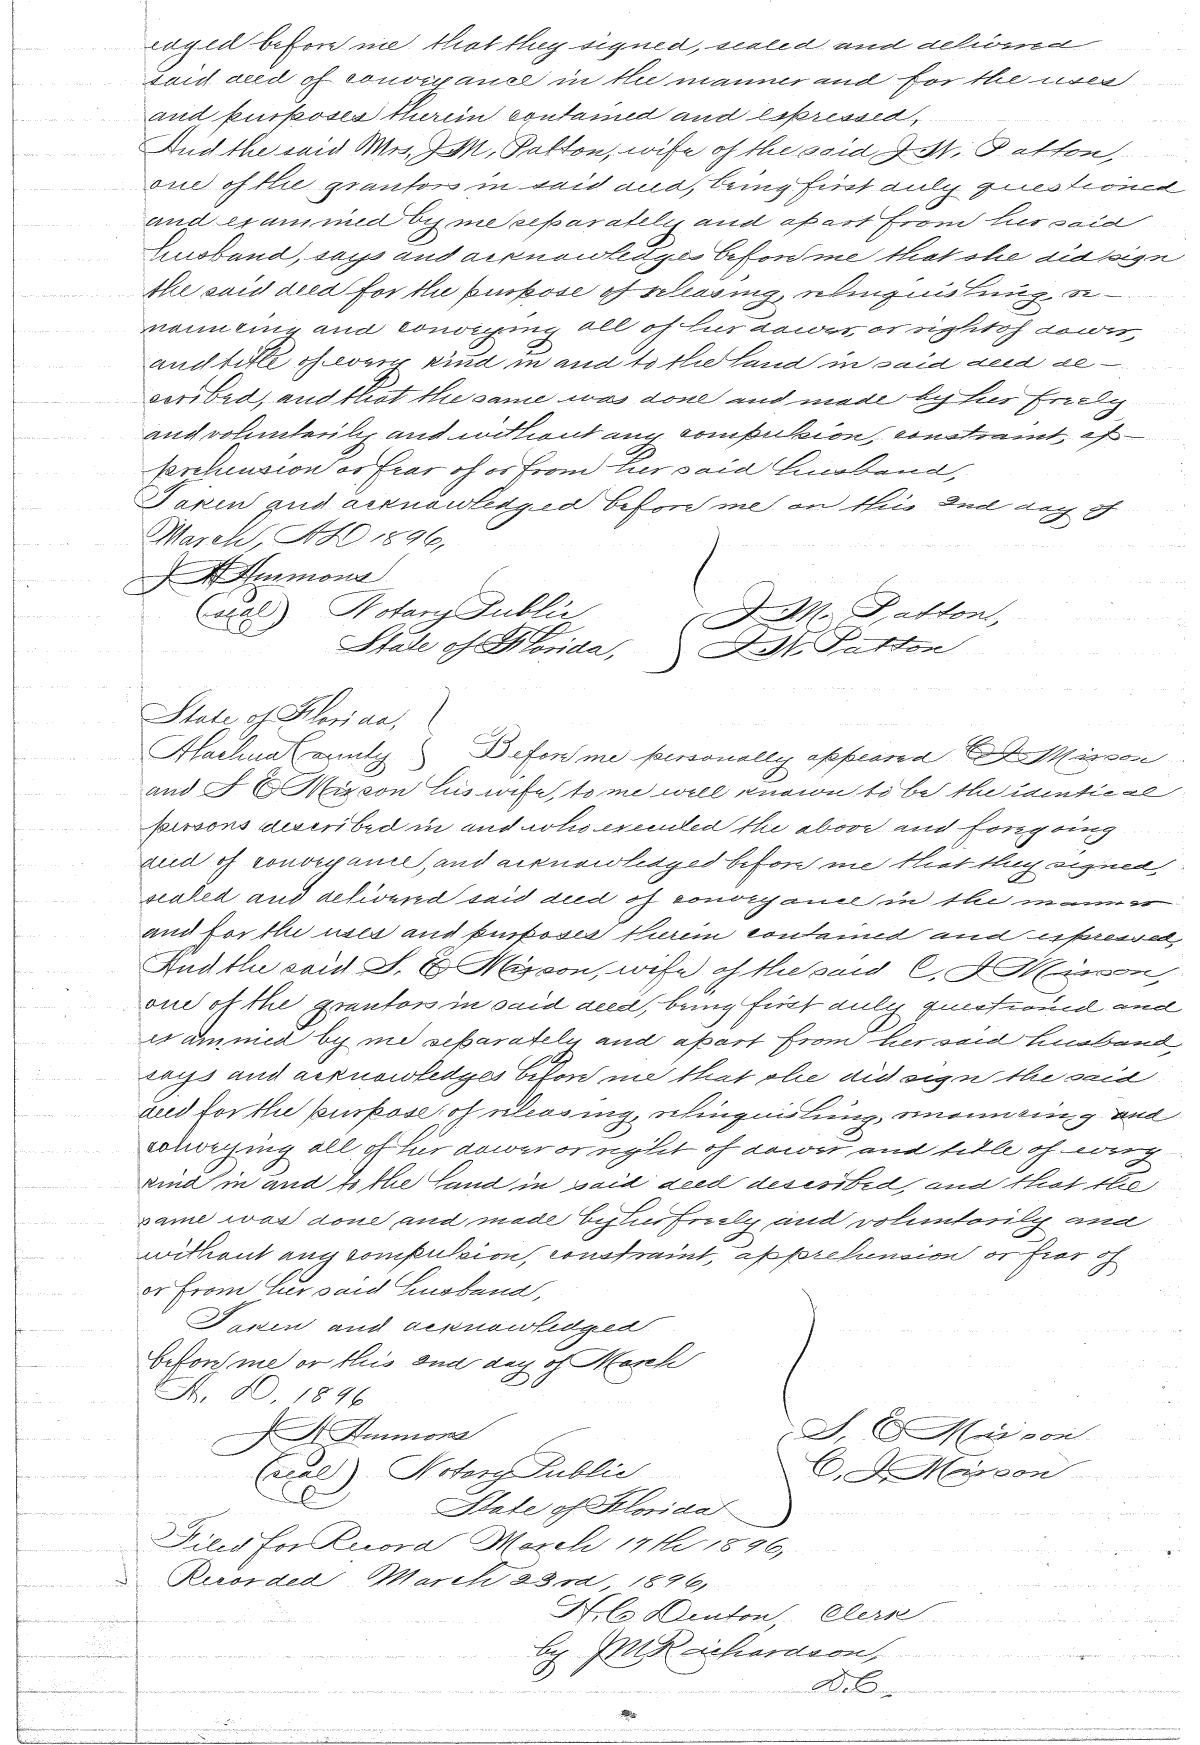 edged before me that they signed, sealed and delivered
said deed of conveyance in the manner and for the uses
and purposes therein contained and expressed,
And the said Mrs, J M, Patton, wife of the said J W. Patton,
one of the grantors in said deed, being first duly questioned
and examined by me separately and apart from her said
husband, says and acknowledges before me that she did sign
the said deed for the purpose of releasing, relinquishing, re-
nouncing and conveying all of her dower, or right of dower,
and title of every kind in and to the land in said deed de-
scribed, and that the same was done and made by her freely
and voluntarily and without any compulsion, constraint, ap-
prehension or fear of or from her said husband,
Taken and acknowledged before me on this 2nd day of
March, A D 1896,
J A Ammons
(seal) Notary Public J. M. Patton,
State of Florida, J. W. Patton
State of Florida,
Alachua County Before me personally appeared C J Mixson
and S E Mixson his wife, to me well known to be the identical
persons described in and who executed the above and foregoing
deed of conveyance, and acknowledged before me that they signed,
sealed and delivered said deed of conveyance in the manner
and for the uses and purposes therein contained and expressed,
And the said S. E Mixson, wife of the said C. J Mixson,
one of the grantors in said deed, being first duly questioned and
examined by me separately and apart from her said husband,
says and acknowledges before me that she did sign the said
deed for the purpose of releasing, relinquishing, renouncing and
conveying all of her dower or right of dower and title of every
kind in and to the land in said deed described, and that the
same was done and made by her freely and voluntarily and
without any compulsion, constraint, apprehension or fear of
or from her said husband,
Taken and acknowledged
before me on this 2nd day of March
A. D. 1896
J A Ammons S. E Mixson
(seal) Notary Public C. J. Mixson
State of Florida
Filed for Record March 17th 1896,
Recorded March 23rd, 1896,
H. C Denton, Clerk
by J M Richardson,
D. C.